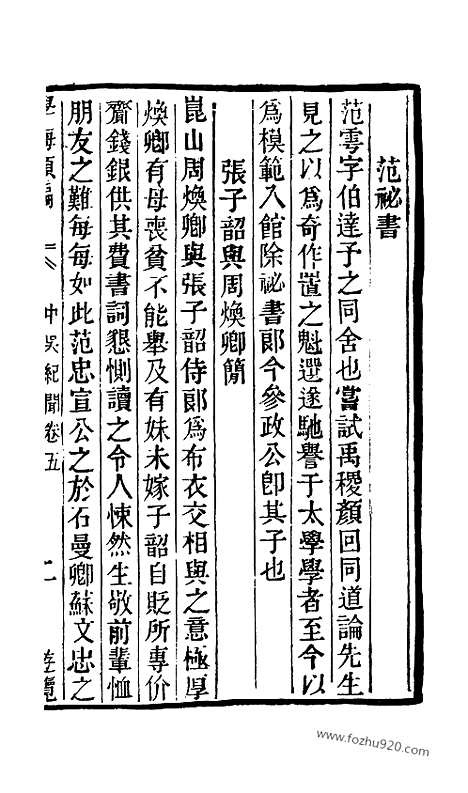 范祕書
范雩字伯達予之同舍也嘗試禹稷顏回同道論先生
見之以爲奇作置之魁選遂馳譽于太學學者至今以
爲模範入館除祕書郞今參政公卽其子也
張子韶與周煥卿簡
崑山周煥卿與張子韶侍郞爲布衣交相與之意極厚
煥卿有母喪貧不能舉及有妹未嫁子韶自貶所專价
齎錢銀供其費書詞懇惻讀之令人悚然生敬前輩恤
朋友之難每每如此范忠宣公之於石曼卿蘇文忠之
學海類編 中吳紀聞卷五 二
www.fozhu920.com